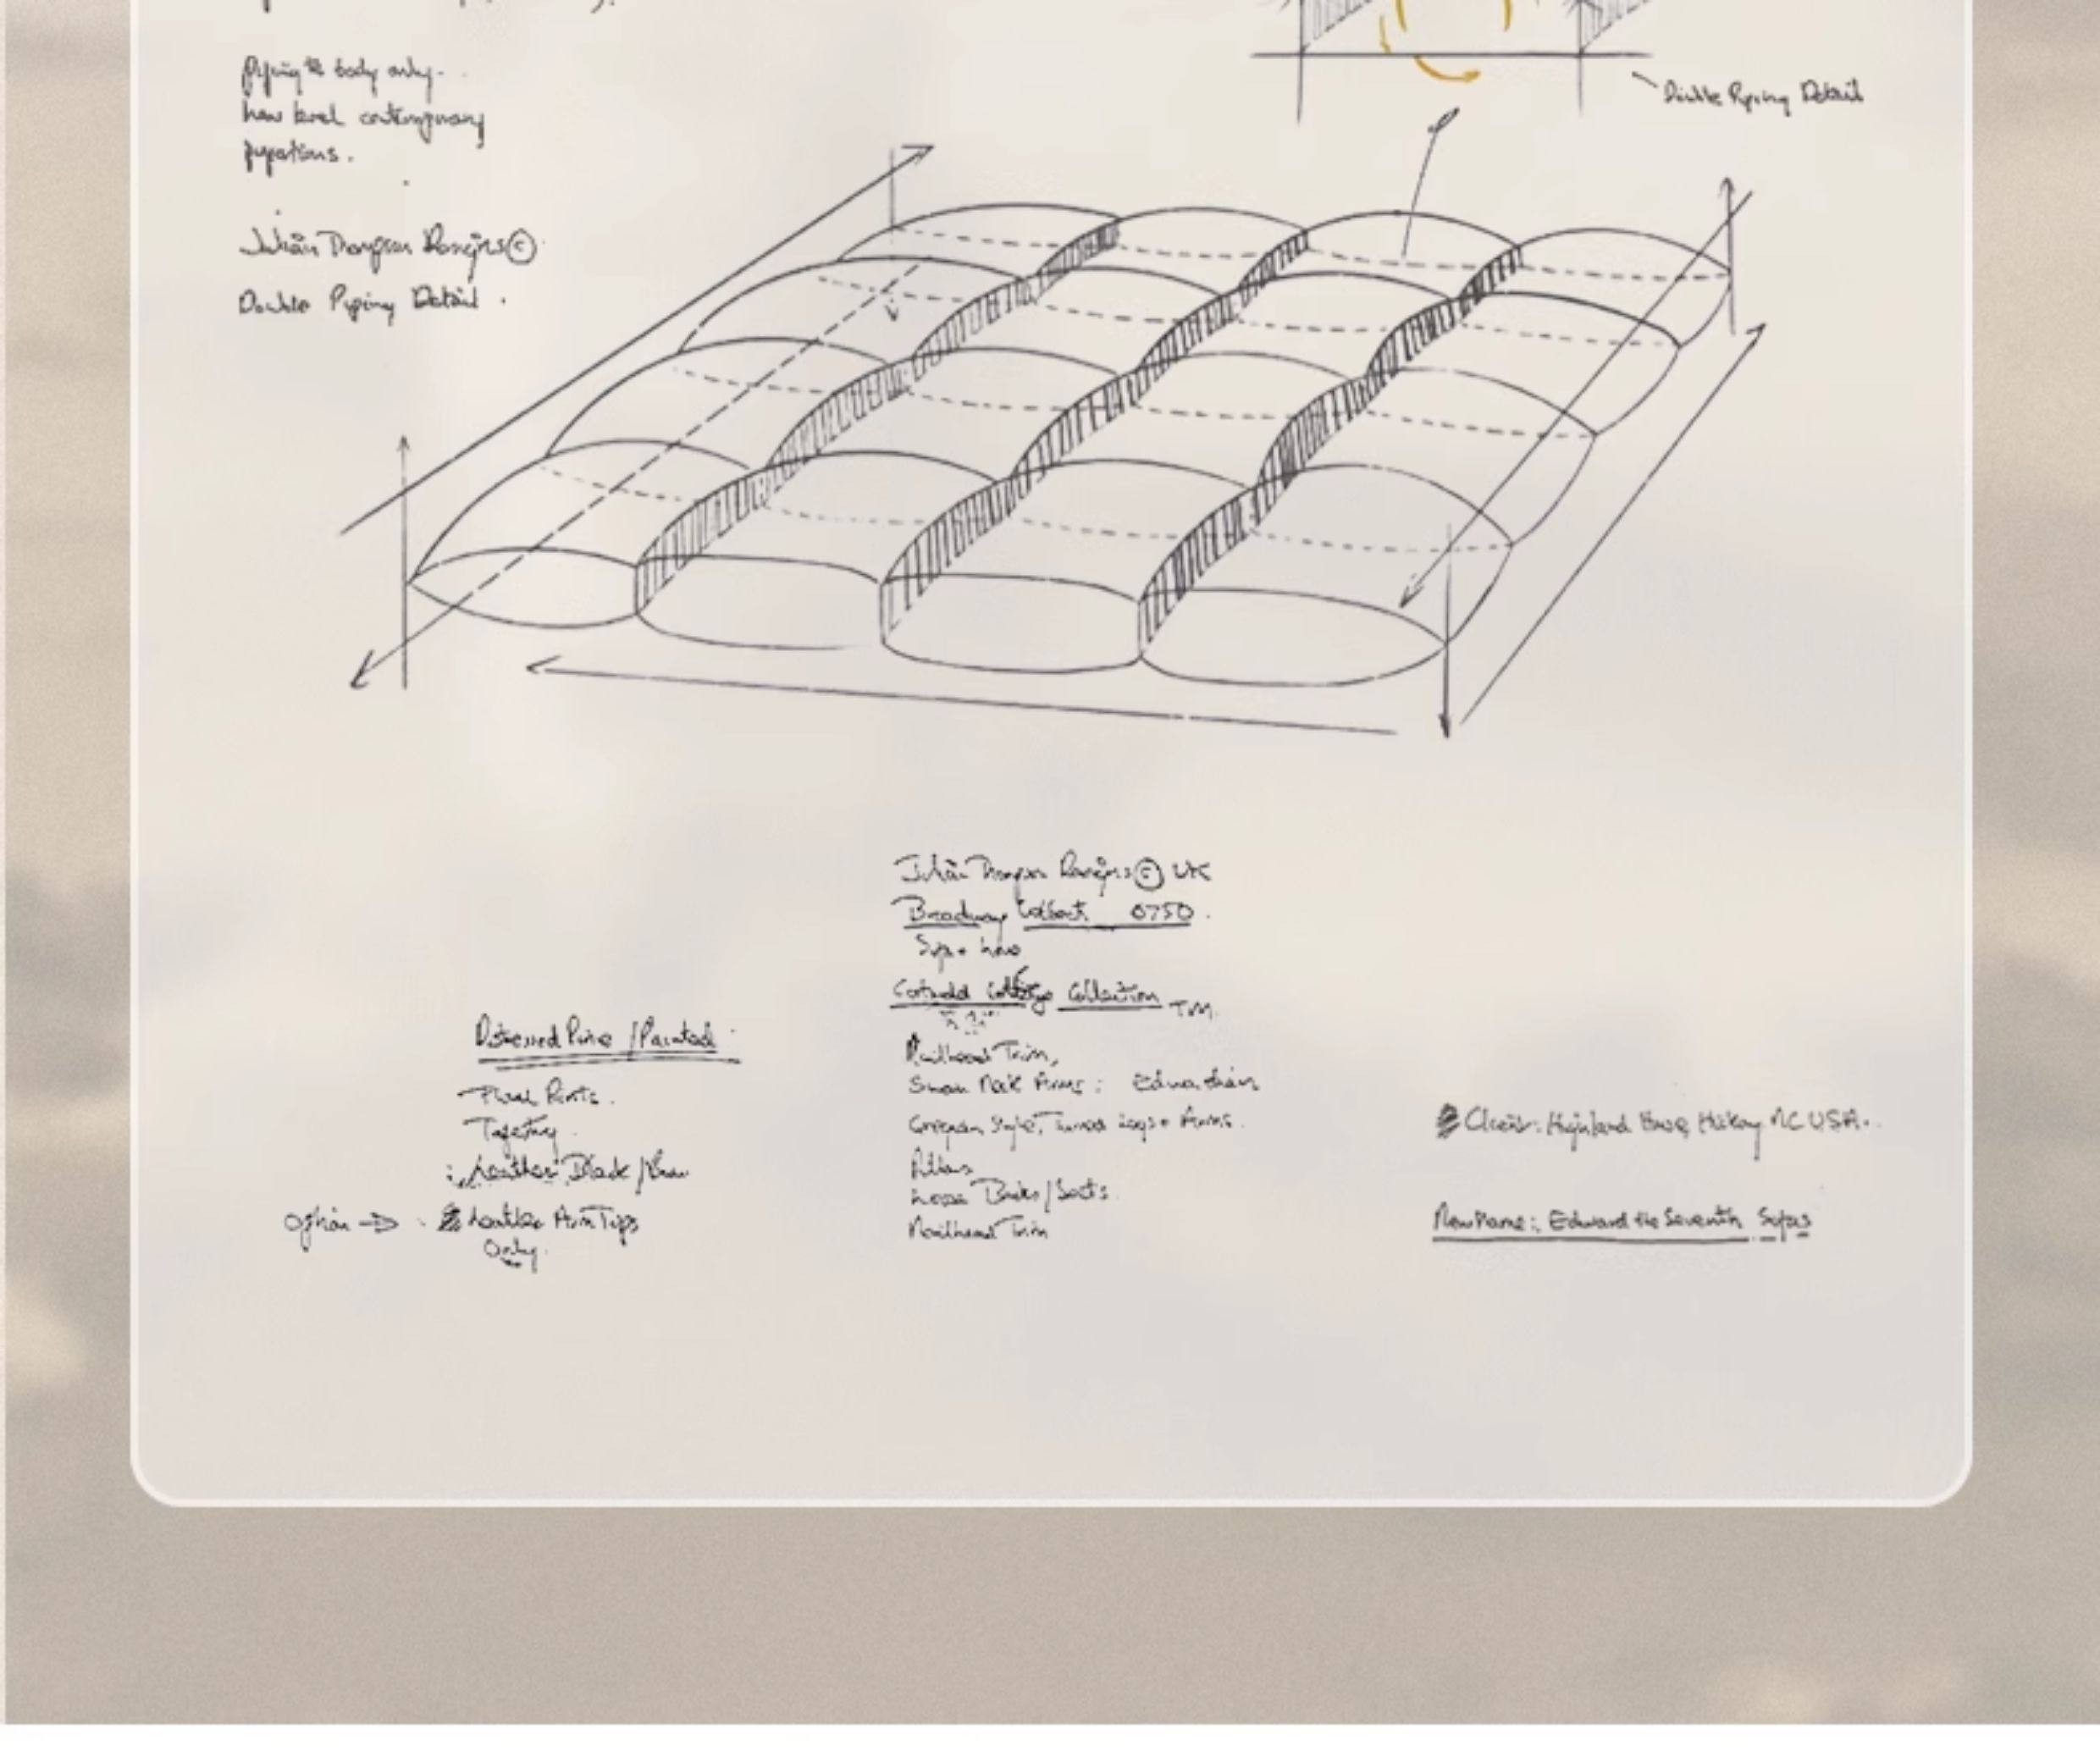 Piping to body only.
low level contemporary
Julian Thompson Designs ©
Double Piping Detail.
Double Piping Detail
Julian Thompson Designs © UK
Broadway 0750.
Cotswold Cottage Collection TM.
Nailhead Trim,
Swan Neck Arms: Edwardian
Grecian Style, Turned Legs + Arms.
Loose Backs/Seats.
Nailhead Trim
Distressed Pine/Painted
Floral Prints.
Tapestry.
Leather Black/
Option → Leather Arm Tips
Only.
Client: Highland House Hickory NC USA.
New Name: Edward the Seventh Sofas